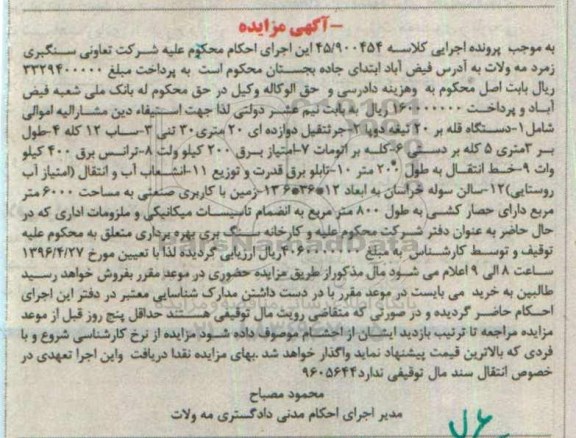 -آگهی مزایده
به موجب پرونده اجرایی کلاسه ۴۵/۹۰۰۴۵۴ این اجرای احکام محکوم علیه شرکت تعاونی سنگبری
زمرد مه ولات به آدرس فیض آباد ابتدای جاده بجستان محکوم است به پرداخت مبلغ ۳۳۲۹۴۰۰۰۰۰
ریال بابت اصل محکوم به وهزینه دادرسی و حق الوکاله وکیل در حق محکوم له بانک ملی شعبه فیض
آباد و پرداخت ۱۶۰۰۰۰۰۰۰ ریال به بابت نیم عشر دولتی لذا جهت استیفاء دین مشارالیه اموالی
شامل۱-دستگاه قله بر ۲۰ تیغه دوپا ۲-جرثقیل دوازده ای ۲۰ متری۳۰ تنی ۳-ساب ۱۲ کله ۴-طول
بر ۳متری ۵ کله بر دستی ۶-کلبه بر اتومات ۷-امتیاز برق ۲۰۰ کیلو ولت ۸-ترانس برق ۴۰۰ کیلو
وات ۹-خط انتقال به طول ۲۰۰ متر ۱۰-تابلو برق قدرت و توزیع ۱۱-انشعاب آب و انتقال (امتیاز آب
روستایی)۱۲-سالن سوله خراسان به ابعاد ۱۲*۳۶*۶ ۱۳-زمین با کاربری صنعتی به مساحت ۶۰۰۰ متر
مربع دارای حصار کشی به طول ۸۰۰ متر مربع به انضمام تاسیسات میکانیکی و ملزومات اداری که در
حال حاضر به عنوان دفتر شرکت محکوم علیه و کارخانه سنگ بری بهره برداری متعلق به محکوم علیه
توقیف و توسط کارشناس به مبلغ ریال ارزیابی گردیده لذا با تعیین مورخ ۱۳۹۶/۴/۲۷
ساعت ۸ الی ۹ اعلام می شود مال مذکوراز طریق مزایده حضوری در موعد مقرر بفروش خواهد رسید
طالبین به خرید می بایست در موعد مقرر با در دست داشتن مدارک شناسایی معتبر در دفتر این اجرای
احکام حاضر گردیده و در صورتی که متقاضی رویت مال توقیفی هستند حداقل پنج روز قبل از موعد
مزایده مراجعه تا ترتیب بازدید ایشان از احشام موصوف داده شود مزایده از نرخ کارشناسی شروع و با
فردی که بالاترین قیمت پیشنهاد نماید واگذار خواهد شد .بهای مزایده نقدا دریافت واین اجرا تعهدی در
خصوص انتقال سند مال توقیفی ندارد۹۶۰۵۶۴۴
محمود مصباح
مدیر اجرای احکام مدنی دادگستری مه ولات